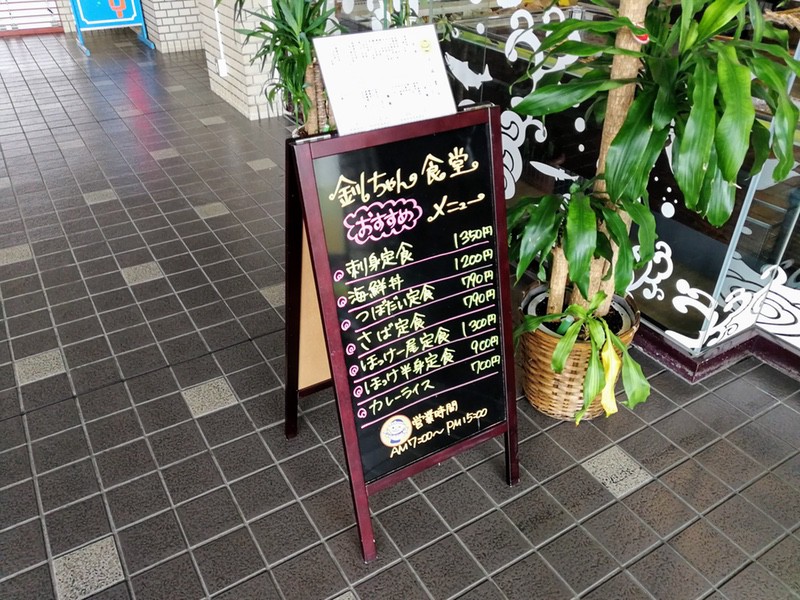 釧ちゃん食堂
おすすめ メニュー
刺身定食 1350円
海鮮丼 1200円
つぼだい定食 790円
さば定食 790円
ほっけ一尾定食 1300円
ほっけ半身定食 900円
カレーライス 700円
営業時間
AM7:00〜PM15:00